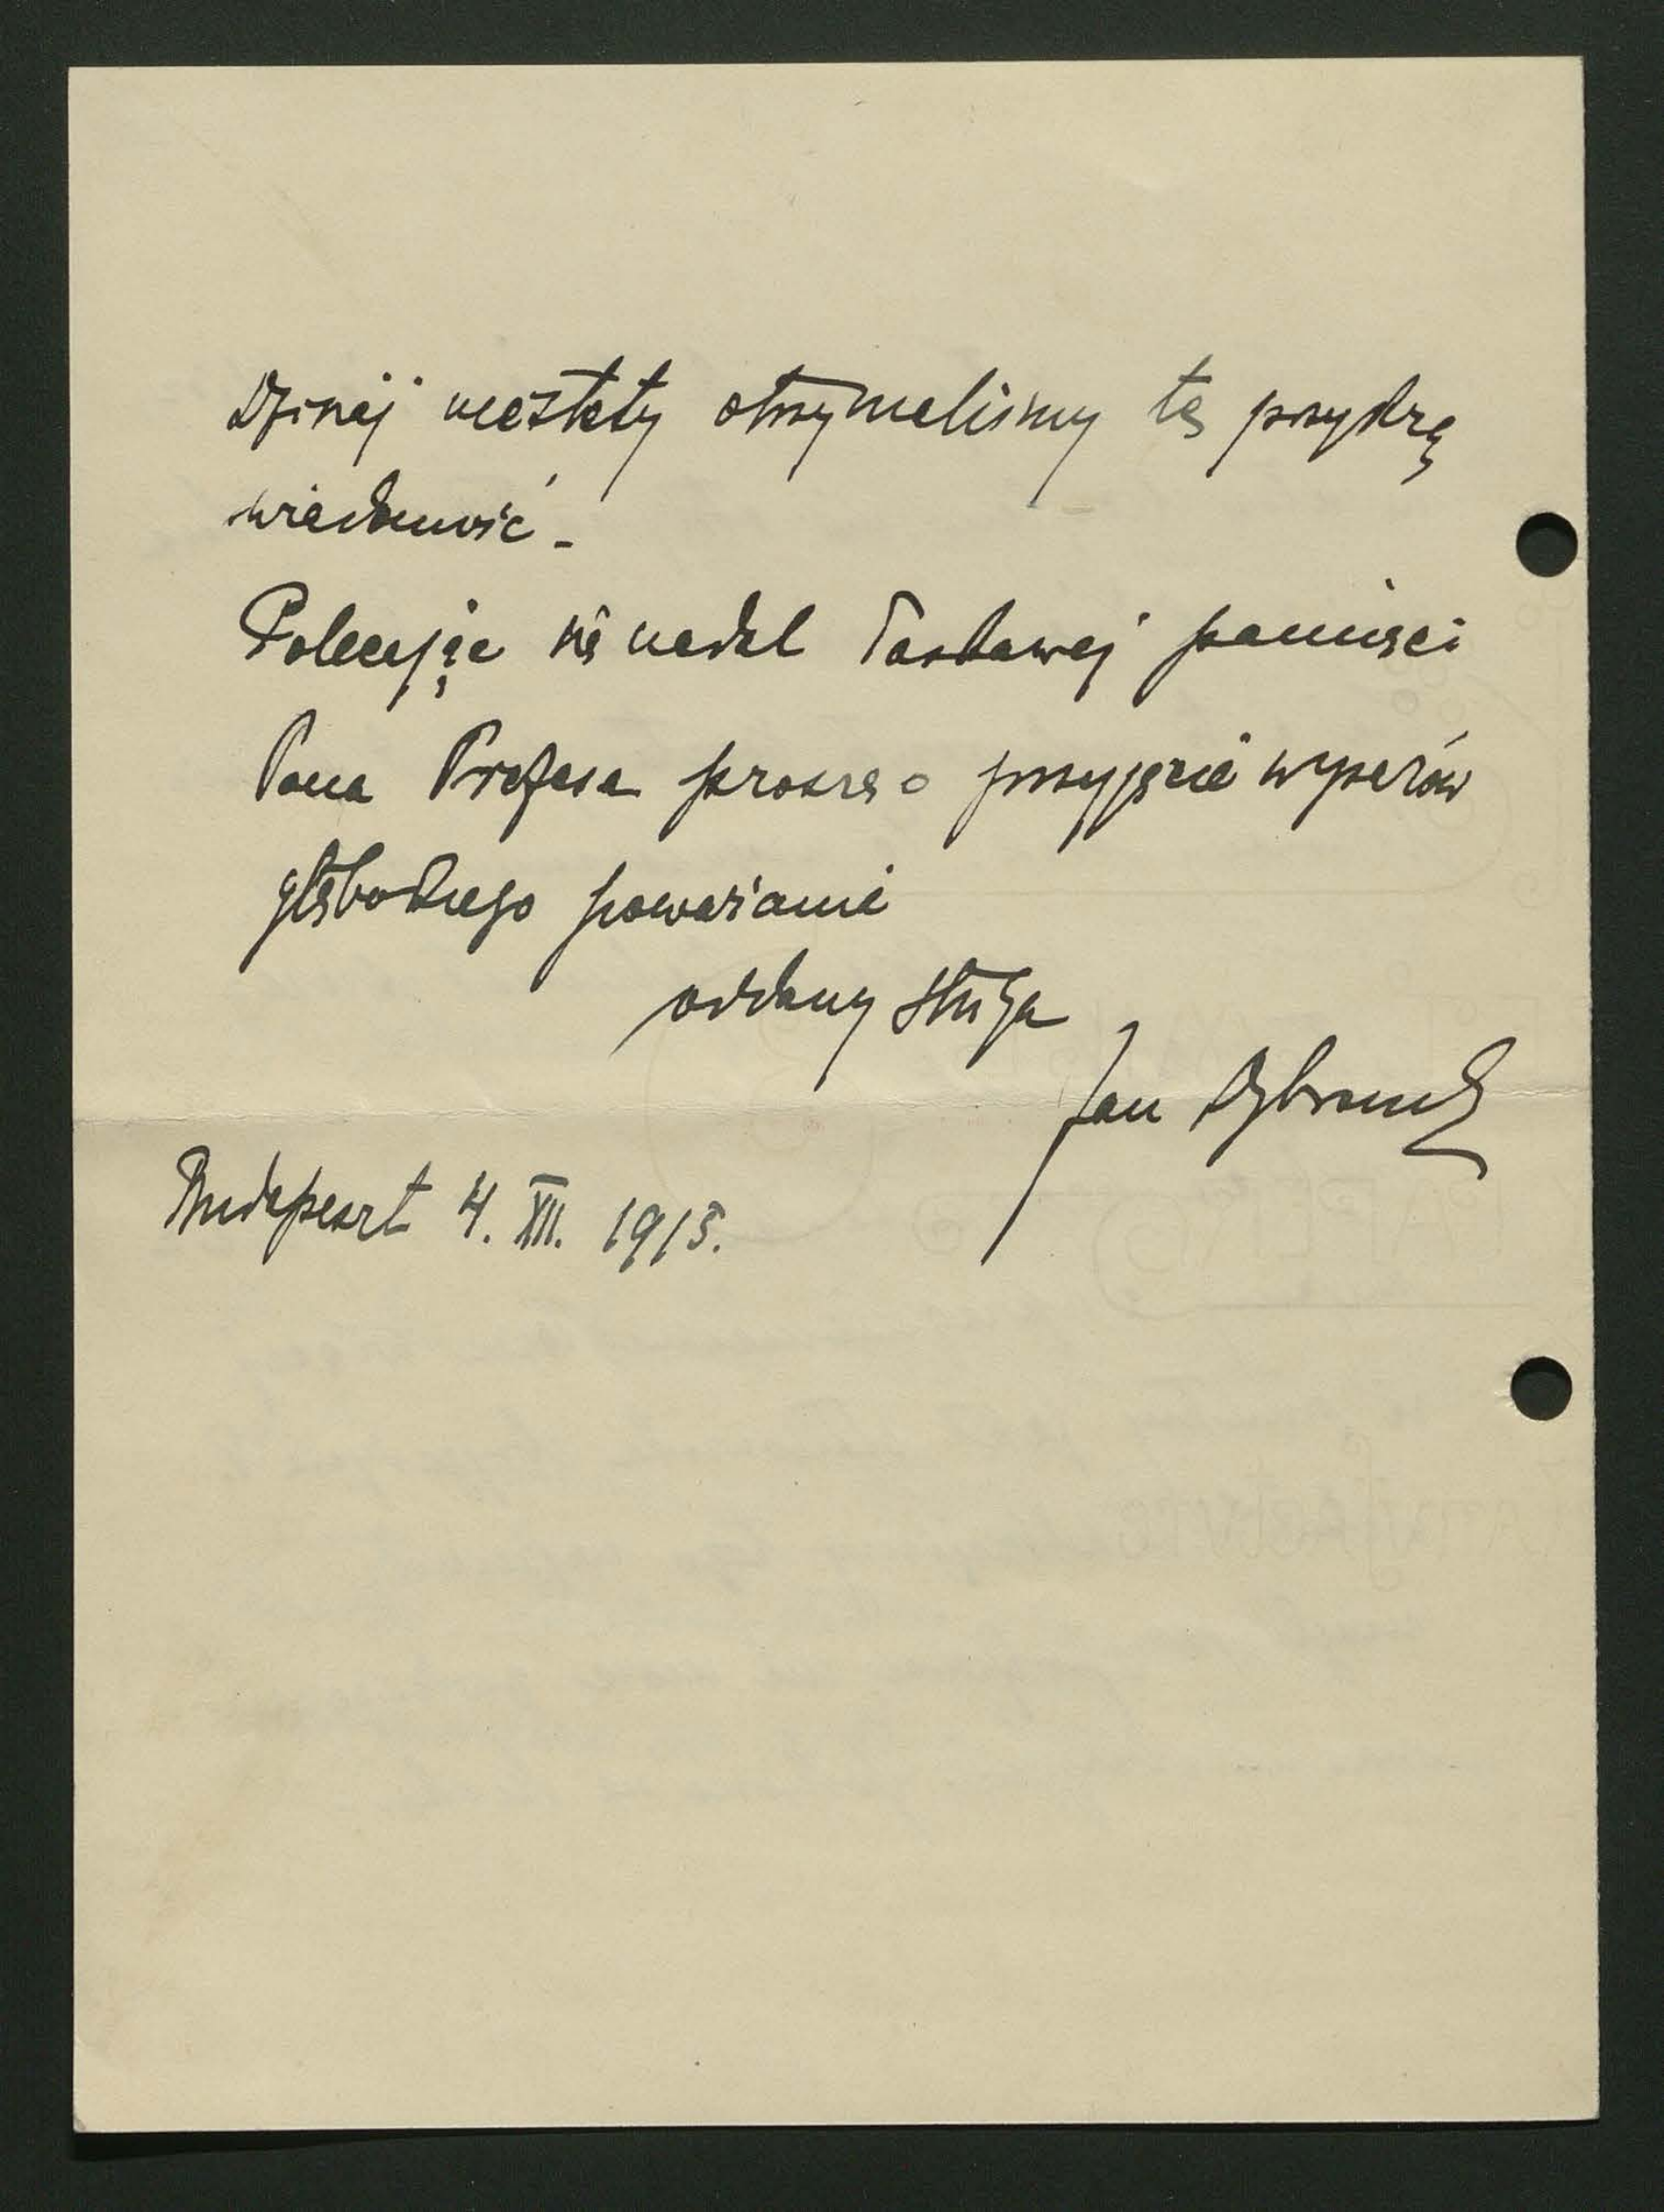 Dzisiaj niestety otrzymaliśmy tę przykrą
wiadomość -
Polecając się nadal łaskawej pamięci
Pana Profesora proszę o przyjęcie wyrazów
głębokiego poważania
oddany sługa
Jan
Budapeszt 4. XII. 1915.